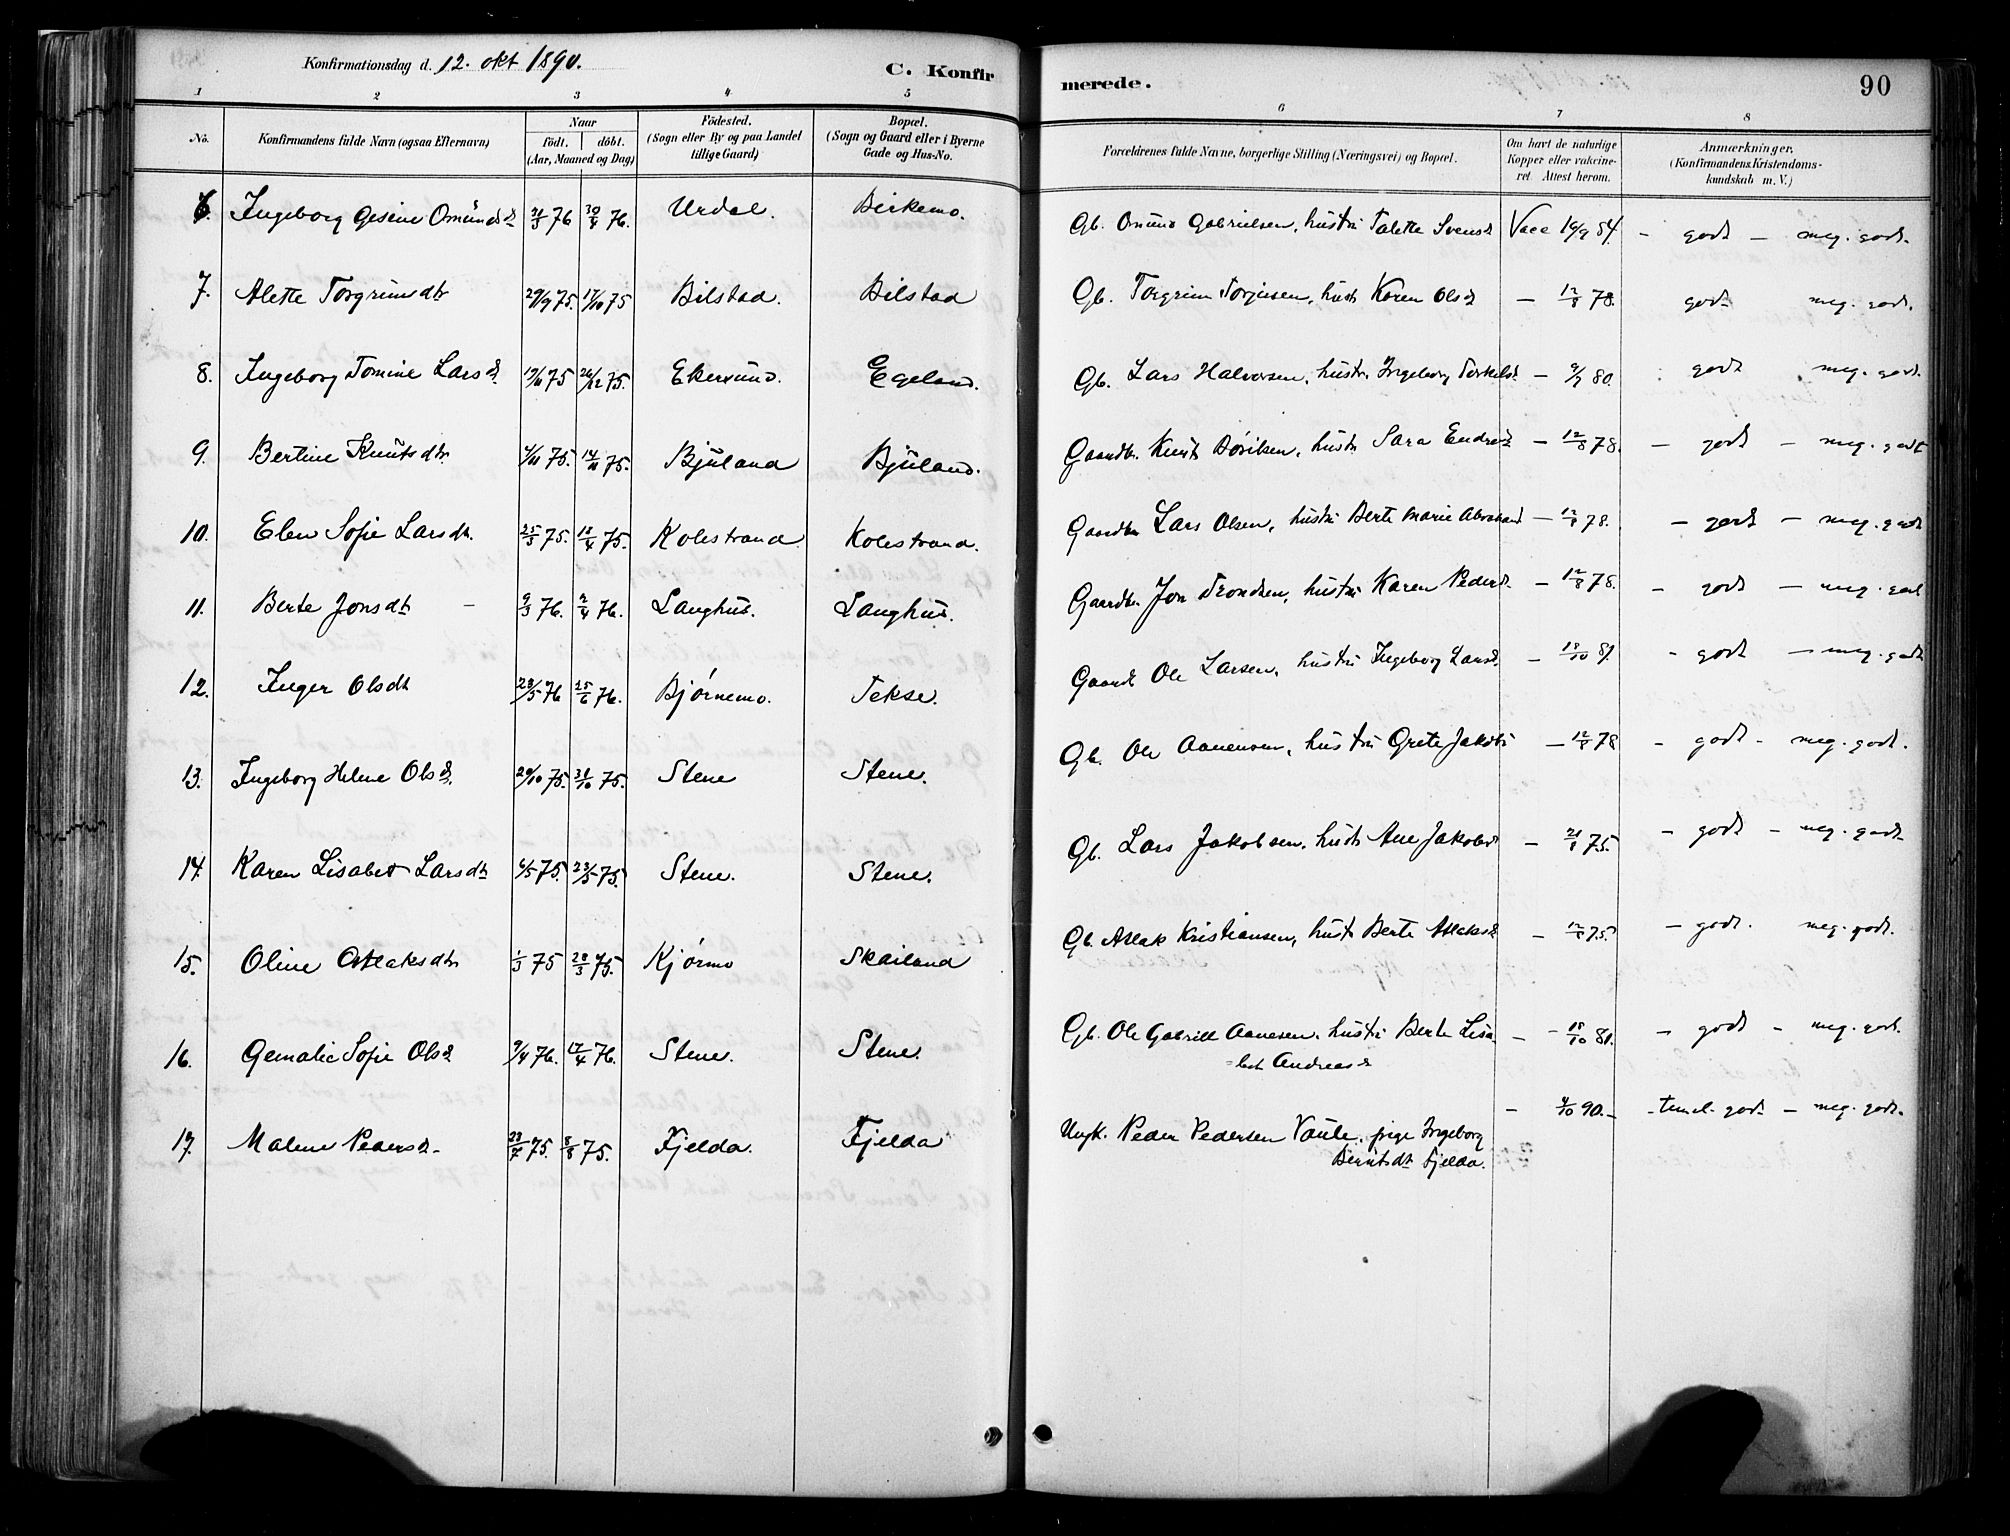 Konfirmationsdag d. 12. okt 1890.
C. Konfirmerede.
90
1 2 3 4 5 6 7 8
No.
Konfirmandens fulde Navn (ogsaa Efternavn)
Naar
födt. döbt.
(Aar, Maaned og Dag)
Födested.
(Sogn eller By og paa Landet
tillige Gaard)
Bopæl.
(Sogn og Gaard eller i Byerne
Gade og Hus-No.
Forældrenes fulde Navne, borgerlige Stilling (Næringsvei) og Bopæl.
Om havt de naturlige
Kopper eller vakcine-
ret. Attest herom.
Anmærkninger,
(Konfirmandens Kristendoms-
kundskab m. V.)
6. Ingeborg Gesine Omundsdt 76 76. Urdal. Birkemo. Gb. Omund Gabrielsen, hustru Talette Svensd Vacc 19/9 84. - godt - meg. godt.
7. Alette Torgrimsdt 29/9 75. 17/10 75 Bilstad. Bilstad Gb. Torgrim Torjusen, hust. Karen Olsd - 12/8 78. godt meg. godt.
8. Ingeborg Tomine Larsd. 75 26/12 75. Ekersund. Egeland. Gb. Lars Halvorsen, hustr. Ingeborg Torkelsd. - 9/9 80. godt meg. godt.
9. Bertine Knutsdt. 4/11 75. 14/11 75. Bjuland Bjuland. Gaardbr. Knut hustr Sara Endresd - 12/8 78. - godt - meg. godt
10. Elen Sofie Larsdt. 25/3 75. 18/4 75. Kolestrand Kolestrand. Gaardbr Lars Olsen, hustru Berte Marie Abrahamsd - 12/8 78. - godt - meg. godt
11. Berte Jonsdt 9/3 76. 2/4 76. Langhus. Langhus. Gaardbr. Jon Trondsen, hustru Karen Pedersd. - 12/8 78. - godt - meg. godt
12. Inger Olsdt 28/5 76 25/6 76. Bjørnemo. Tekse. Gaardb Ole Larsen, hustru Ingeborg Larsd. - 18/10 81. - godt - meg. godt
13. Ingeborg Helene Olsd. 20/10 75. 31/10 75. Stene Stene. Gb. Ole Aanensen, hustru Grete Jakobs - 12/8 78 - godt - meg. godt.
14. Karen Lisabet Larsdt 6/5 75. 23/5 75. Stene. Stene. Gb. Lars Jakobsen, hustr Ane Jakobsd - 75. - godt - meg. godt
15. Oline Atlaksdtr 1/3 75 28/3 75. Kjørmo Skailand Gb. Aslak Kristiansen, hustr Berte Atlaksd - 75. - godt. meg. godt.
16. Gemalie Sofie Olsd 9/4 76. 17/4 76. Stene. Stene. Gb. Ole Gabriell Aanesen, hustru Berte Lisa - 18/10 81. - godt - meg. godt.
=bet Andreasd
17. Malene Pedersd. 23/7 75. 8/8 75. Fjelda. Fjelda Ungk. Peder Pedersen Vaule, pige Ingeborg - 4/10 90. - temel. godt - meg. godt.
Berntsdt Fjelda.